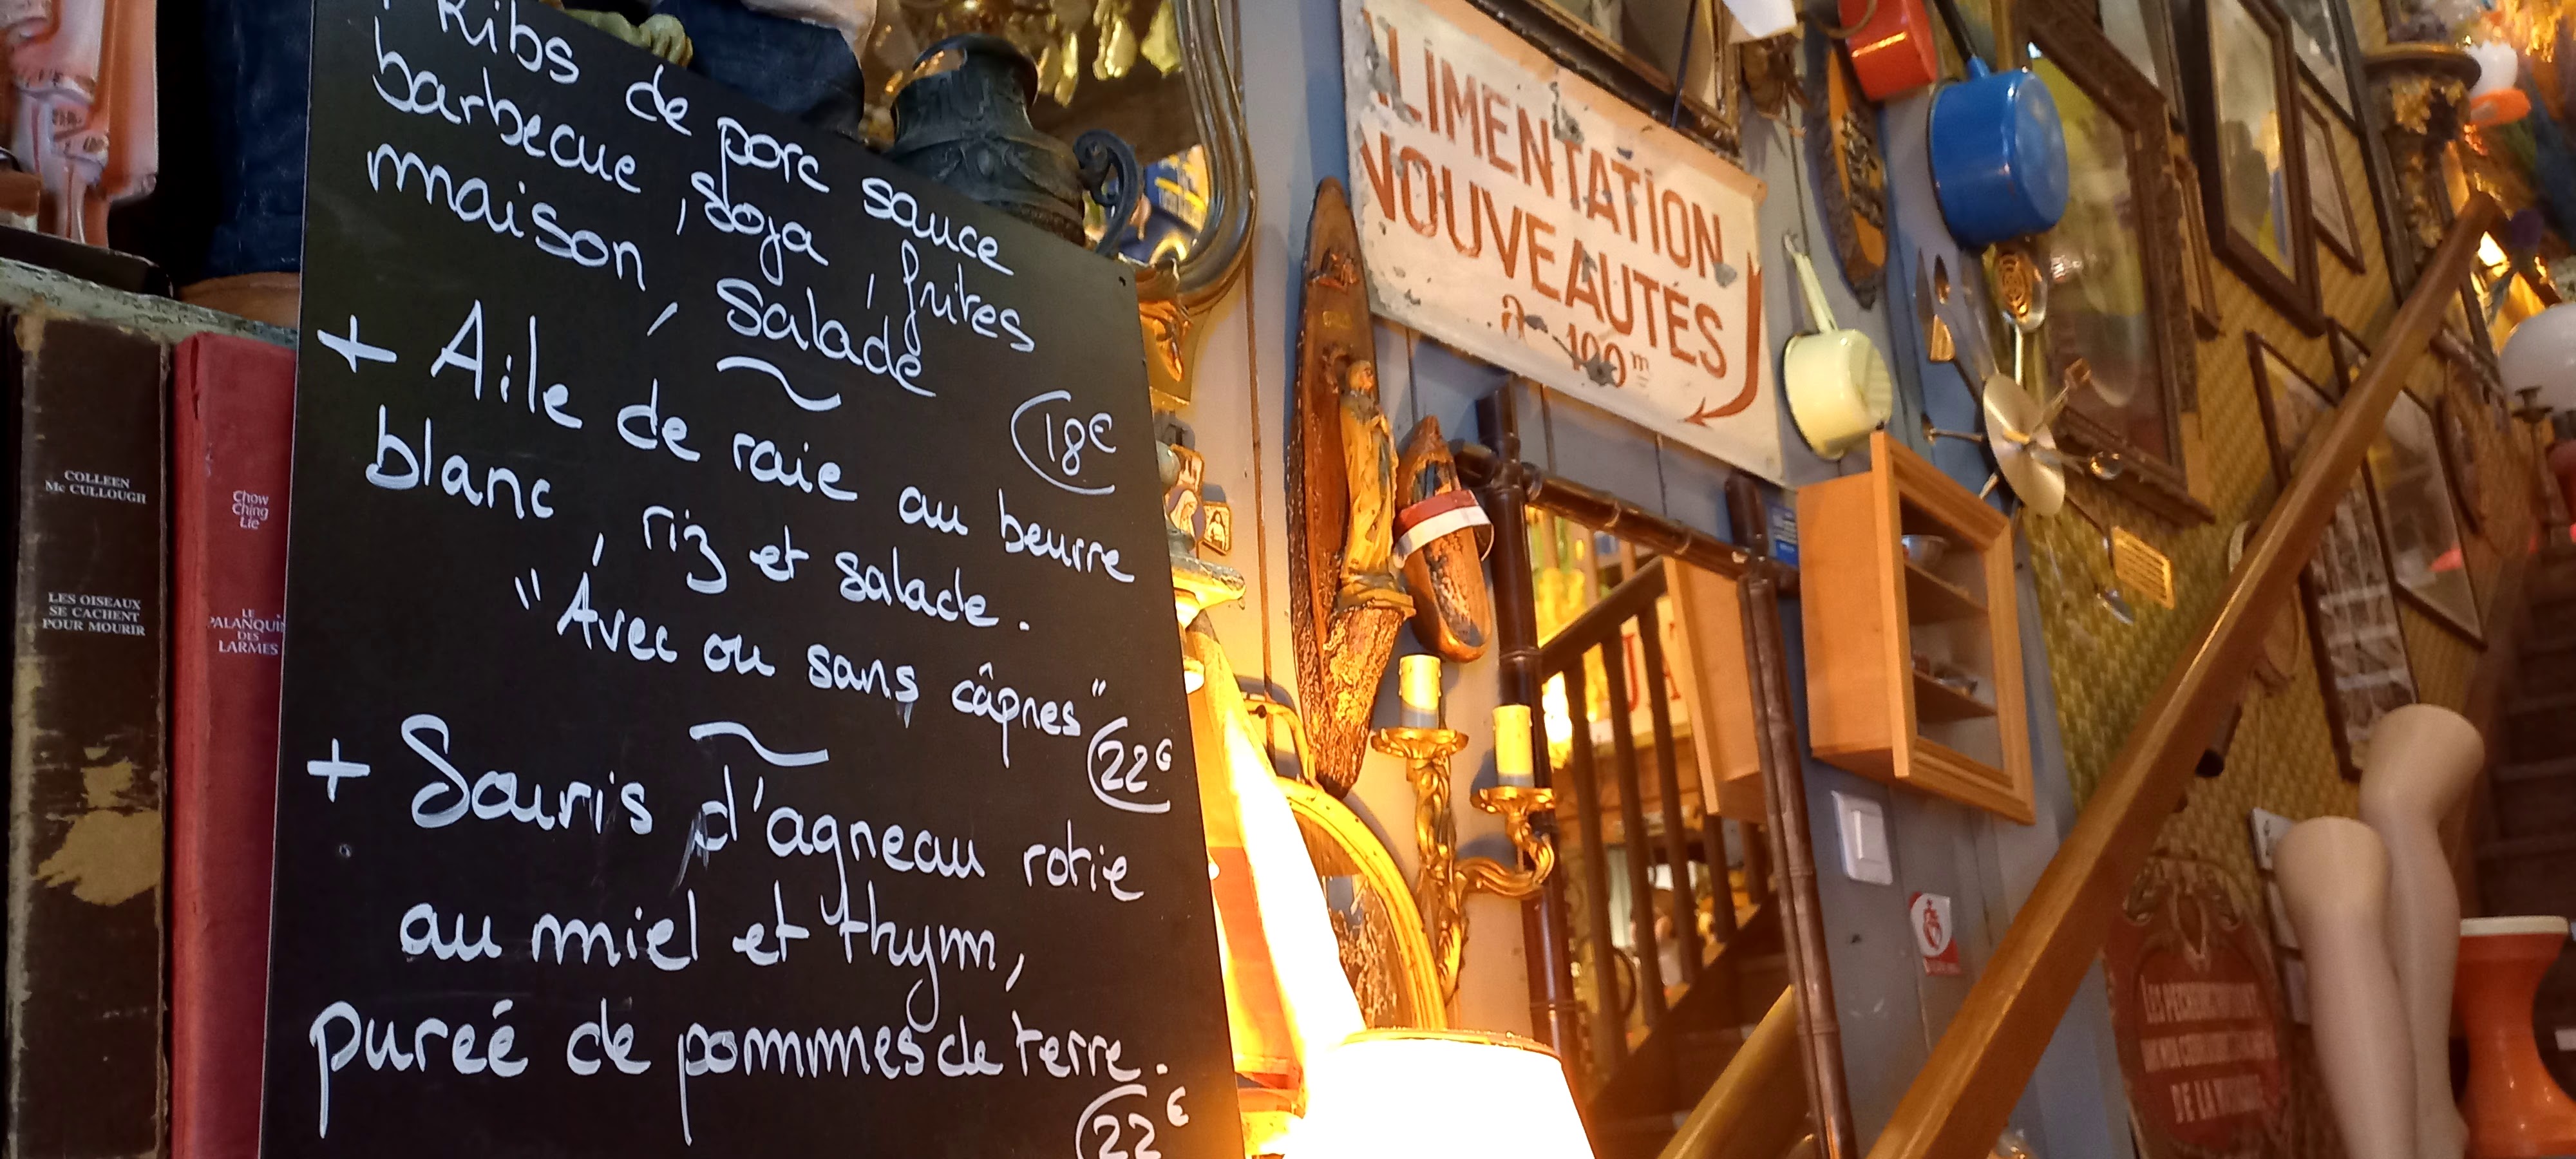 + Ribs de porc sauce
barbecue, soja, frites
maison, salade
18€
+ Aile de raie au beurre
blanc, riz et salade.
"Avec ou sans câpres"
22€
+ Souris d'agneau rotie
au miel et thym,
pureé de pommes de terre.
22€
COLLEEN
Mc CULLOUGH
LES OISEAUX
SE CACHENT
POUR MOURIR
Chow
Ching
Lie
LE
PALANQUIN
DES
LARMES
ALIMENTATION
NOUVEAUTÉS
à 100 m
DE LA